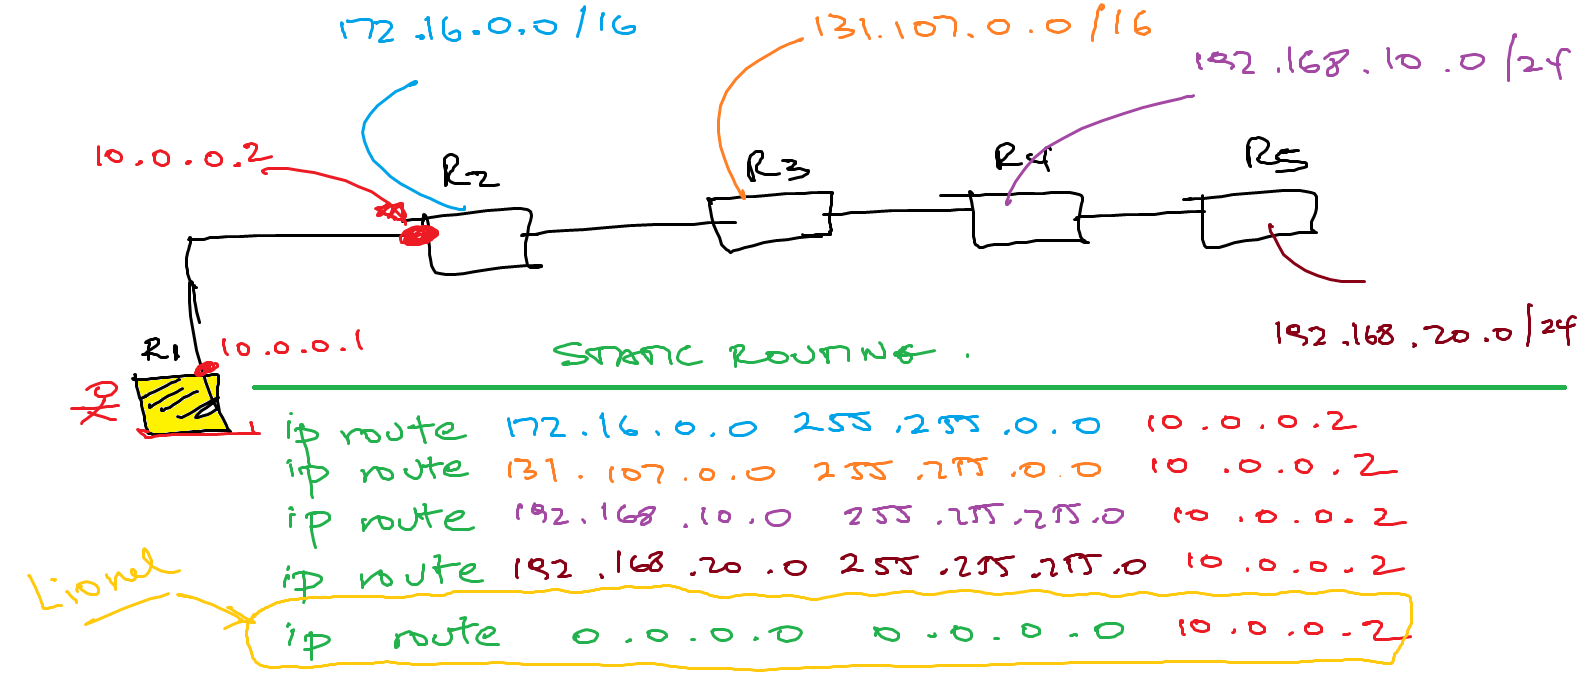 172.16.0.0/16
131.107.0.0/16
192.168.10.0/24
10.0.0.2
R2
R3
R4
R5
R1
10.0.0.1
192.168.20.0/24
STATIC ROUTING.
ip route 172.16.0.0 255.255.0.0 10.0.0.2
ip route 131.107.0.0 255.255.0.0 10.0.0.2
ip route 192.168.10.0 255.255.255.0 10.0.0.2
ip route 192.168.20.0 255.255.255.0 10.0.0.2
Lionel
ip route 0.0.0.0 0.0.0.0 10.0.0.2